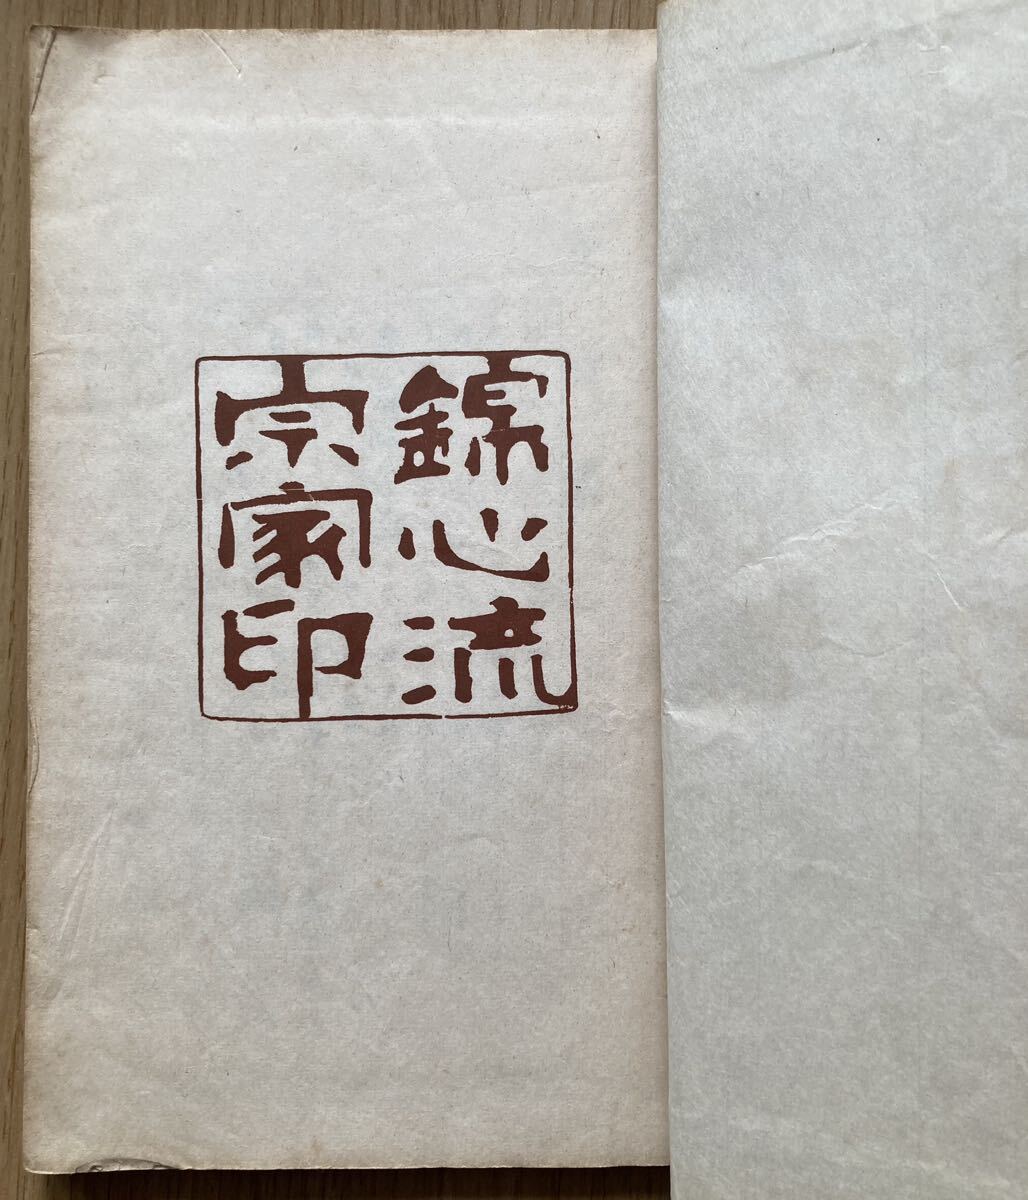 錦心流
宗家印